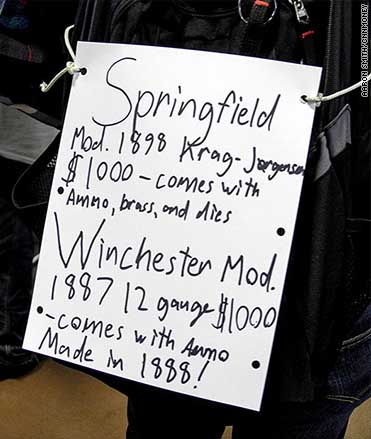 Springfield
Mod. 1898 Krag-Jorgensen
$1000 - comes with
Ammo, brass, and dies
Winchester Mod.
1887 12 gauge $1000
- comes with Ammo
Made in 1888!
AARON SMITH/CNNMONEY